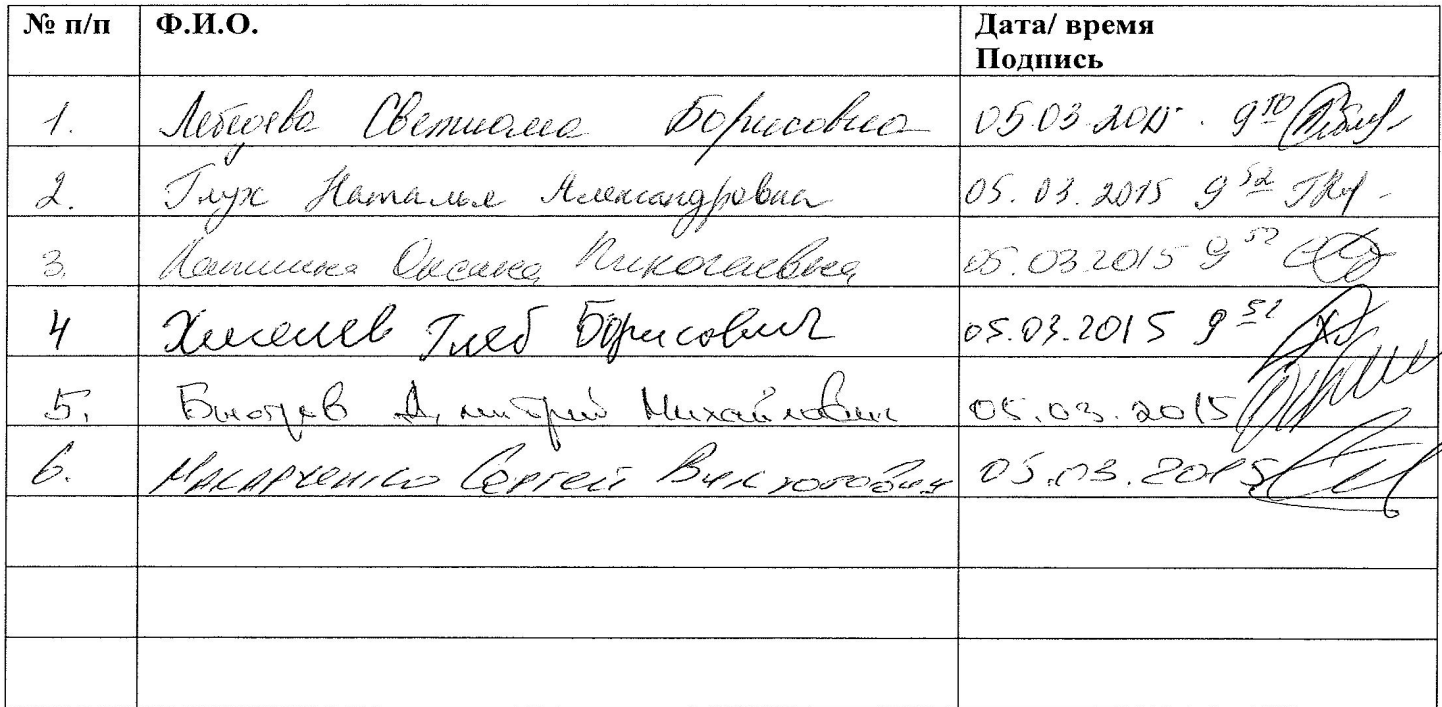 № п/п Ф.И.О. Дата/ время
Подпись
1. Лебедева Светлана Борисовна 05.03.2015. 9 50
2. Глух Наталья Александровна 05.03.2015 9 52
3. Оксана Николаевна 05.03.2015 9 52
4 Глеб Борисович 05.03.2015 9 52
5. Дмитрий Михайлович 05.03.2015
6. Макарченко Сергей Викторович 05.03.2015